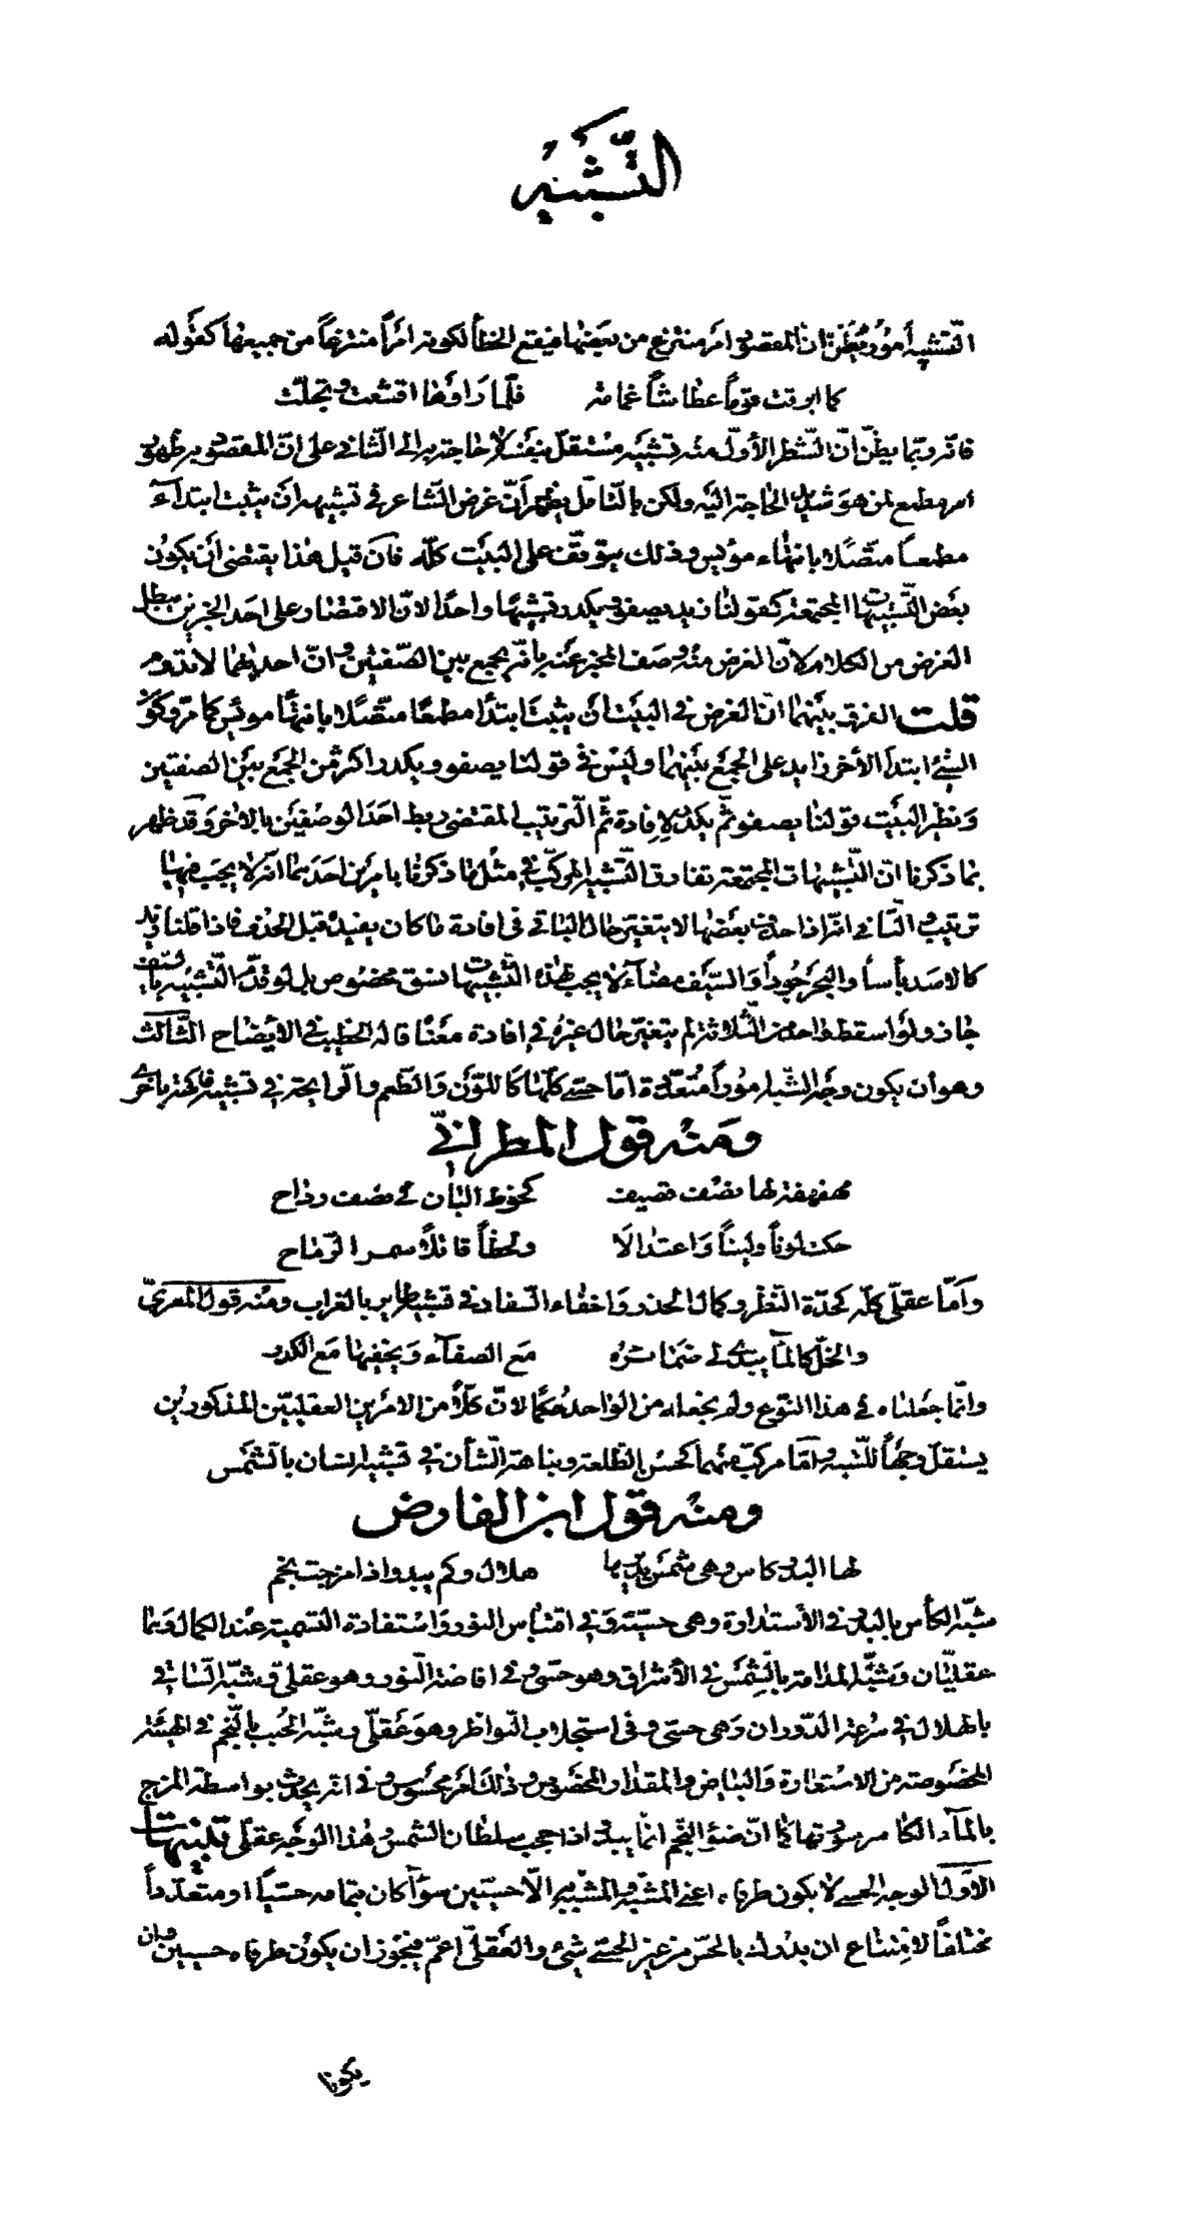 التشبيه
التشبيه أمور يظن ان المقصود امر منتزع من بعضها فيقع الخطأ لكونه امراً منتزعاً من جميعها كقوله
كما ابرقت قوماً عطاشاً غمامة فلما رأوها اقشعت وتجلت
فانه ربما يظن ان الشطر الأول منه تشبيه مستقل بنفسه لا حاجة به الى الثاني على ان المقصود به ظهور
امر مطمع لمن هو شديد الحاجة اليه ولكن بالتأمل يظهر أن غرض الشاعر في تشبيهه ان يثبت ابتداء
مطمعاً متصلا بانتهاء مؤيس وذلك يتوقف على البيت كله فان قيل هذا يقتضى أن يكون
بعض التشبيهات المجتمعة كقولنا زيد يصفو ويكدر تشبيها واحدا لان الاقتصار على احد الخبرين يبطل
الغرض من الكلام لان الغرض منه وصف المخبر عنه بانه يجمع بين الصفتين وان احديهما لا تدوم
قلت الفرق بينهما ان الغرض في البيت ان يثبت ابتدأ مطمعا متصلا بانتهاء مويس كما مر وكون
الشئ ابتدأ الأخر زايد على الجمع بينهما وليس في قولنا يصفو ويكدر اكثر من الجمع بين الصفتين
ونظير البيت قولنا يصفو ثم يكدر لإفادة ثم الترتيب المقتضى ربط احد الوصفين بالاخر وقد ظهر
بما ذكرنا ان التشبيهات المجتمعة تفارق التشبيه المركب في مثل ما ذكرنا بامرين احدهما انه لا يجب فيها
ترتيب الثاني انه اذا حذف بعضها لا يتغير حال الباقي في افادة ما كان يفيده قبل الحذف فاذا قلنا زيد
كالاسد بأساً والبحر جوداً والسيف مضاء لا يجب لهذه التشبيهات نسق مخصوص بل لو قدم التشبيه بالسيف
جاز ولو اسقط واحد من الثلاثة لم يتغير حال غيره في إفادة معناه قاله الخطيب في الايضاح الثالث
وهو ان يكون وجه الشبه اموراً متعددة اما حسي كلها كاللون والطعم والرايحة في تشبيه فاكهة باخرى
ومنه قول المطراني
مهفهفة لها نصف قصيف كخوط البان في نصف رداح
حكت لوناً وليناً واعتدالا ولحظاً قاتلاً سمر الرماح
وأما عقلي كله كحدة النظر وكمال الحذر واخفاء السفاد في تشبيه طاير بالغراب ومنه قول المعري
والخل كالماء يبدي لي ضمائره مع الصفاء ويخفيها مع الكدر
وانما جعلناه في هذا النوع ولم يجعله من الواحد حكما لان كلاً من الامرين العقليين المذكورين
يستقل وجهاً للشبه واما مركب منهما كحسن الطلعة ونباهة الشأن في تشبيه انسان بالشمس
ومنه قول ابن الفارض
لها البدر كاس وهى شمس يديرها هلال وكم يبدو اذا مزجت نجم
شبه الكأس بالبدر في الاستدارة وهى حسية وفي اقتباس النور واستفادة التسمية عند الكمال وهما
عقليان وشبه المدامة بالشمس في الأشراق وهو حسي وفي افاضة النور وهو عقلي وشبه الساقي
بالهلال في سرعة الدوران وهى حسي وفى استجلاب النواظر وهو عقلي وشبه الحبب بالنجم في الهيئة
المخصوصة من الاستدارة والبياض والمقدار المخصوص وذلك امر محسوس وفي انه يحدث بواسطة المزج
بالماء الكاسر سورتها كما ان ضوء النجم انما يبدو اذا حجب سلطان الشمس وهذا الوجه عقلي تنبيهات
الأول الوجه الحسي لا يكون طرفاه اعني المشبه والمشبه به الا حسيين سواء كان بتمامه حسياً او متعدداً
مختلفاً لامتناع ان يدرك بالحس من غير الحسي شئ والعقلي اعم فيجوز ان يكون طرفاه حسيين وان
يكونا